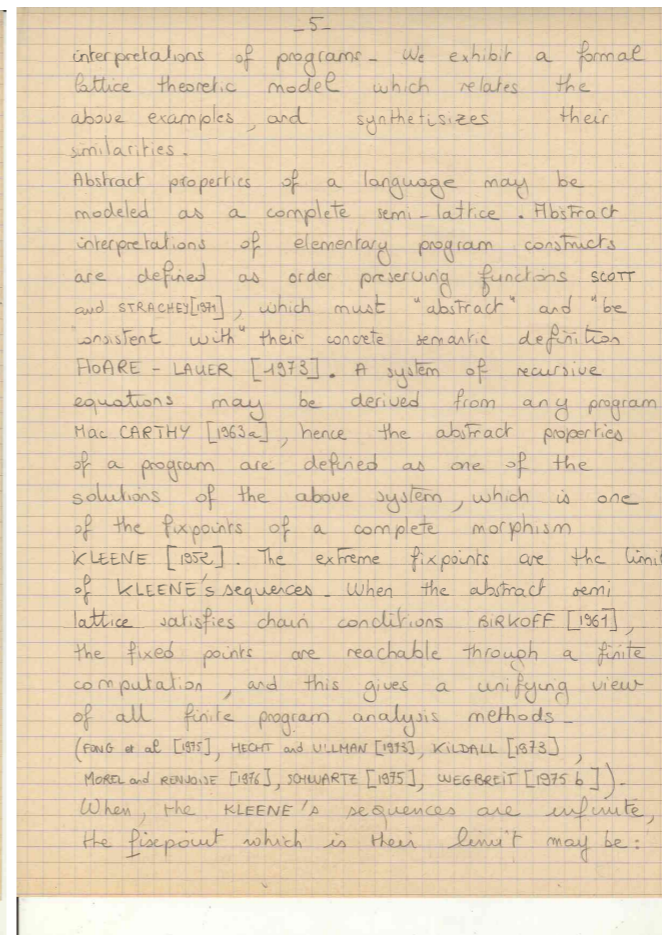 _5_
interpretations of programs_ We exhibit a formal
lattice theoretic model which relates the
above examples, and synthetisizes their
similarities.
Abstract properties of a language may be
modeled as a complete semi-lattice. Abstract
interpretations of elementary program constructs
are defined as order preserving functions SCOTT
and STRACHEY[1971], which must "abstract" and "be
onsistent with" their concrete semantic definition
HOARE - LAUER [1973]. A system of recursive
equations may be derived from any program
Mac CARTHY [1963a], hence the abstract properties
of a program are defined as one of the
solutions of the above system, which is one
of the fixpoints of a complete morphism
KLEENE [1952]. The extreme fixpoints are the limit
of KLEENE's sequences_ When the abstract semi
lattice satisfies chain conditions BIRKOFF [1961],
the fixed points are reachable through a finite
computation, and this gives a unifying view
of all finite program analysis methods_
(FONG et al [1975], HECHT and ULLMAN [1973], KILDALL [1973],
MOREL and RENVOISE [1976], SCHWARTZ [1975], WEGBREIT [1975 b]).
When, the KLEENE's sequences are infinite,
the fixpoint which is their limit may be: